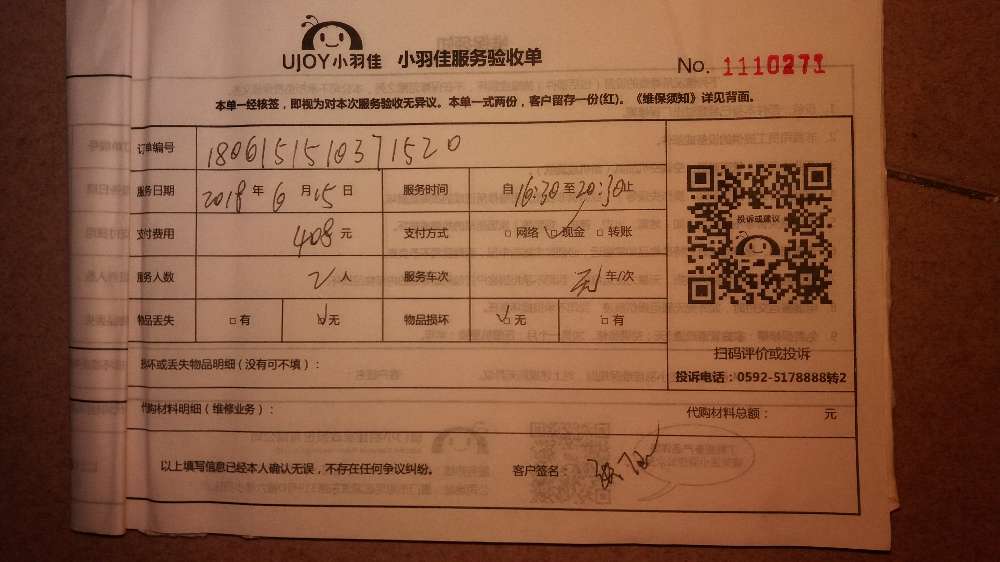 UJOY小羽佳 小羽佳服务验收单
No. 1110271
本单一经核签，即视为对本次服务验收无异议。本单一式两份，客户留存一份(红)。《维保须知》详见背面。
订单编号 1806151510371520
服务日期 2018 年 6 月 15 日 服务时间 自 16:30 至 20:30 止
支付费用 408 元 支付方式 □ 网络 □ 现金 □ 转账
服务人数 2 人 服务车次 车/次
物品丢失 □ 有 □ 无 物品损坏 □ 无 □ 有
投诉或建议
扫码评价或投诉
投诉电话：0592-5178888转2
损坏或丢失物品明细（没有可不填）：
代购材料明细（维修业务）： 代购材料总额： 元
以上填写信息已经本人确认无误，不存在任何争议纠纷。 客户签名：